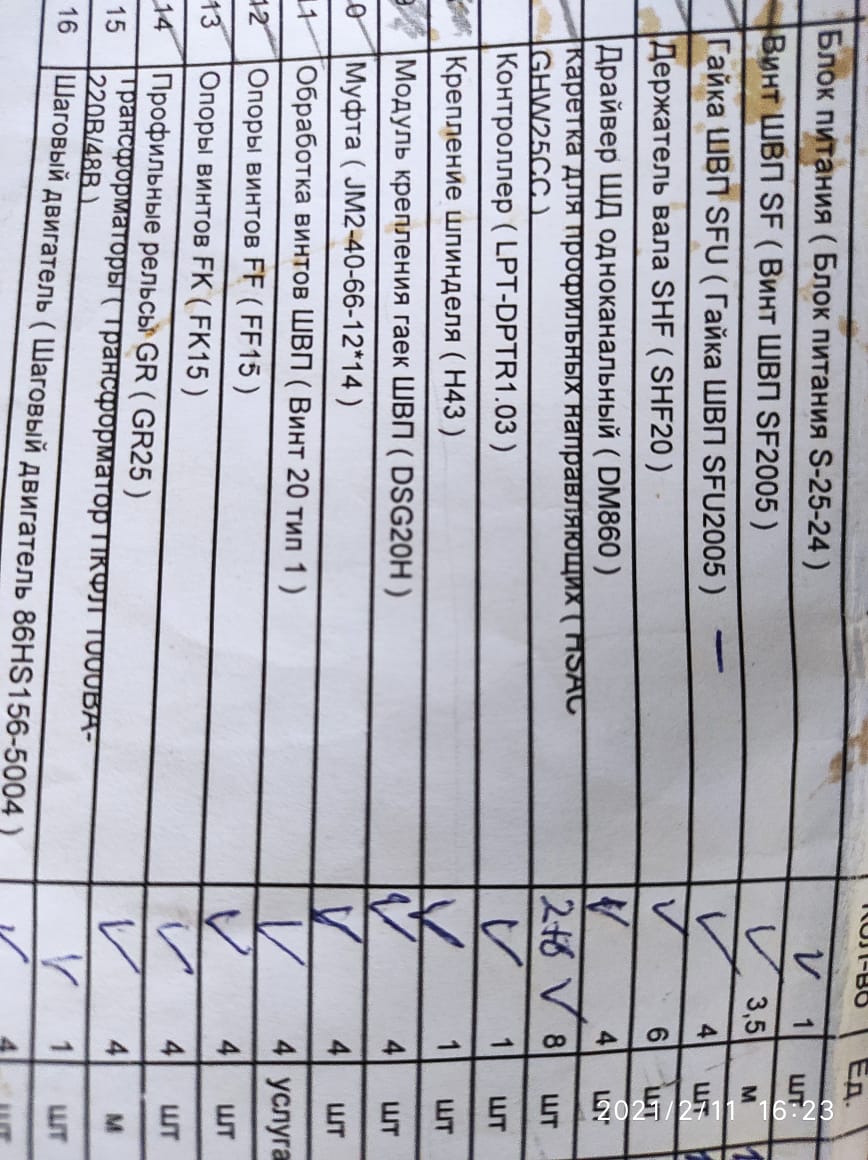 Кол-во Ед.
Блок питания ( Блок питания S-25-24 ) 1 шт
Винт ШВП SF ( Винт ШВП SF2005 ) 3,5 м
Гайка ШВП SFU ( Гайка ШВП SFU2005 ) — 4 шт
Держатель вала SHF ( SHF20 ) 6 шт
Драйвер ШД одноканальный ( DM860 ) 4 шт
Каретка для профильных направляющих ( HSAC
GHW25CC ) 2+8 8 шт
Контроллер ( LPT-DPTR1.03 ) 1 шт
Крепление шпинделя ( H43 ) 1 шт
9 Модуль крепления гаек ШВП ( DSG20H ) 4 шт
0 Муфта ( JM2-40-66-12*14 ) 4 шт
11 Обработка винтов ШВП ( Винт 20 тип 1 ) 4 услуга
12 Опоры винтов FF ( FF15 ) 4 шт
13 Опоры винтов FK ( FK15 ) 4 шт
14 Профильные рельсы GR ( GR25 ) 4 м
15 Трансформаторы ( Трансформатор ПКФЛ 1000ВА-
220В/48В ) 1 шт
16 Шаговый двигатель ( Шаговый двигатель 86HS156-5004 ) 4 шт
2021/2/11 16:23